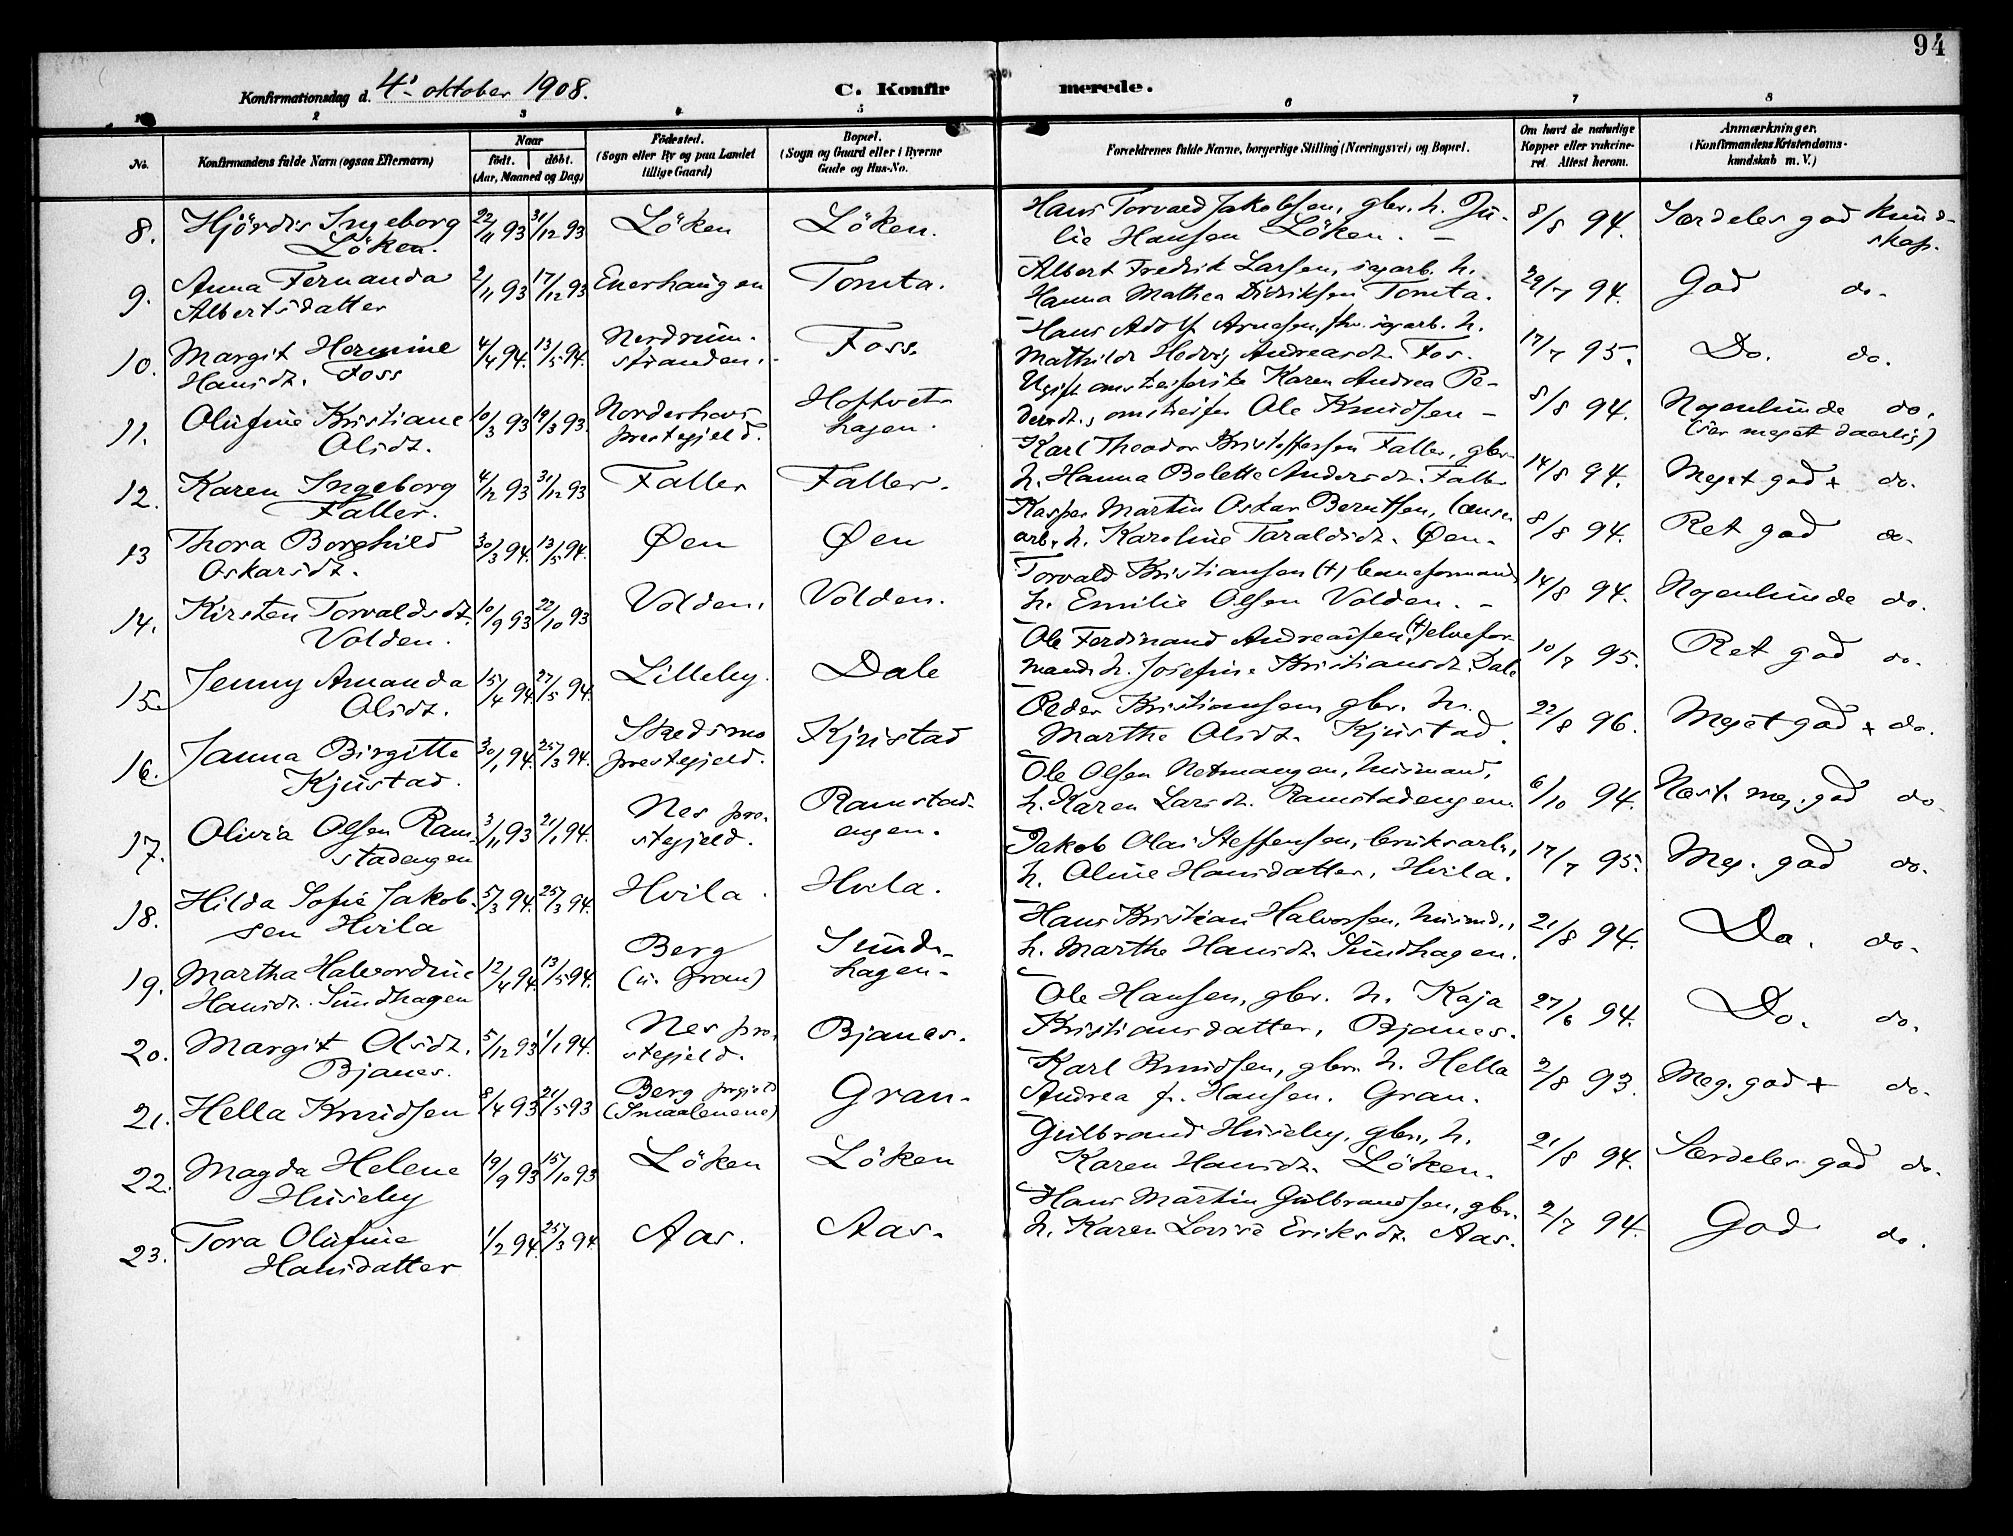 94
Konfirmationsdag d. 4de oktober 1908.
C. Konfirmerede.
1 2 3 4 5 6 7 8
No.
Konfirmandens fulde Navn (ogsaa Efternavn)
Naar
födt. döbt.
(Aar, Maaned og Dag)
Födested.
(Sogn eller By og paa Landet
tillige Gaard)
Bopæl.
(Sogn og Gaard eller i Byerne
Gade og Hus-No.
Forældrenes fulde Navne, borgerlige Stilling (Næringsvei) og Bopæl.
Om havt de naturlige
Kopper eller vakcine-
ret. Attest herom.
Anmærkninger.
(Konfirmandens Kristendoms-
kundskab m. V.)
8. Hjördis Ingeborg 22/11 93 31/12 93 Löken Löken. Hans Torvald Jakobsen, gbr. h. Ju- 8/8 94. Særdeles god kund-
Löken. lie Hansen Löken. – skap.
9. Anna Fernanda 2/11 93 17/12 93 Enerhaugen Tomta. Albert Fredrik Larsen, sagarb. h. 29/7 94. God do.
Albertsdatter Hanna Mathea Didriksen Tomta.
10. Margit Hermine 4/4 94. 13/5 94. Nordrum- Foss. Hans Adolf Arnesen, sagarb. h. 17/7 95. Do. do.
Hansdt. Foss stranden. Mathilde Hedvig Andreasdt. Fos.
11. Olufine Kristiane 10/3 93 19/3 93 Norderhovs Hoftvet- Ugift omstreiferske Karen Andrea Pe- 8/8 94. Nogenlunde do.
Olsdt. prestegjeld. hagen. dersdt., omstreifer Ole Knudsen – (læser meget daarlig)
12. Karen Ingeborg 4/12 93 31/12 93 Faller Faller. Karl Theodor Kristoffersen Faller, gbr. 14/8 94. Meget god + do.
Faller. h. Hanna Bolette Andersdt. Faller
13 Thora Borghild 30/3 94. 13/5 94. Øen Øen Kasper Martin Oskar Berntsen, lænse- 8/8 94. Ret god do.
Oskarsdt. arb. h. Karoline Taraldsdt. Øen.
14. Kirsten Torvaldsdt. 10/9 93 22/10 93 Volden. Volden. Torvald Kristiansen (+) baneformand 14/8 94. Nogenlunde do.
Volden. h. Emilie Olsen Volden. –
15. Jenny Amanda 15/4 94. 27/5 94. Lilleby. Dale Ole Ferdinand Andreassen (+) elvefor- 10/7 95. Ret god do.
Olsdt. mand h. Josefine Kristiansdt. Dale
16. Janna Birgitte 30/1 94. 25/3 94. Skedsmo Kjustad Peder Kristiansen gbr. h. 22/8 96. Meget god + do.
Kjustad. prestegjeld. Marthe Olsdt. Kjustad.
17. Olivia Olsen Ram- 3/11 93 21/1 94. Nes pre- Ramstad- Ole Olsen Netmangen, husmand, 6/10 94. Næst. meg. god do.
stadengen stegjeld. engen. h. Karen Larsdt. Ramstadengen.
18. Hilda Sofie Jakob- 5/3 94. 25/3 94. Hvila. Hvila. Jakob Olai Steffensen, bruksarb., 17/7 95. Meg. god do.
sen Hvila h. Oline Hansdatter, Hvila.
19. Martha Halvordine 12/4 94. 13/5 94. Berg Sund- Hans Kristian Halvorsen, husmd., 21/8 94. Do. do.
Hansdt. Sundhagen (u. Gran) hagen. h. Marthe Hansdt. Sundhagen.
20. Margit Olsdt. 5/12 93 1/1 94. Nes pre- Bjanes. Ole Hansen, gbr. h. Kaja 27/6 94. Do. do.
Bjanes. stegjeld. Kristiansdatter, Bjanes.
21. Hella Knudsen 8/4 93 21/5 93 Berg prgjeld Gran. Karl Knudsen, gbr. h. Hella 2/8 93. Meg. god + do.
(Smaalenene) Andrea f. Hansen. Gran.
22. Magda Helene 19/9 93 15/10 93 Löken Löken Gulbrand Huseby, gbr., h. 21/8 94. Særdeles god do.
Huseby Karen Hansdt. Löken.
23. Tora Olufine 1/2 94. 25/3 94 Aas. Aas. Hans Martin Gulbrandsen, gbr. 2/7 94. God do.
Hansdatter h. Karen Lovise Eriksdt. Aas.